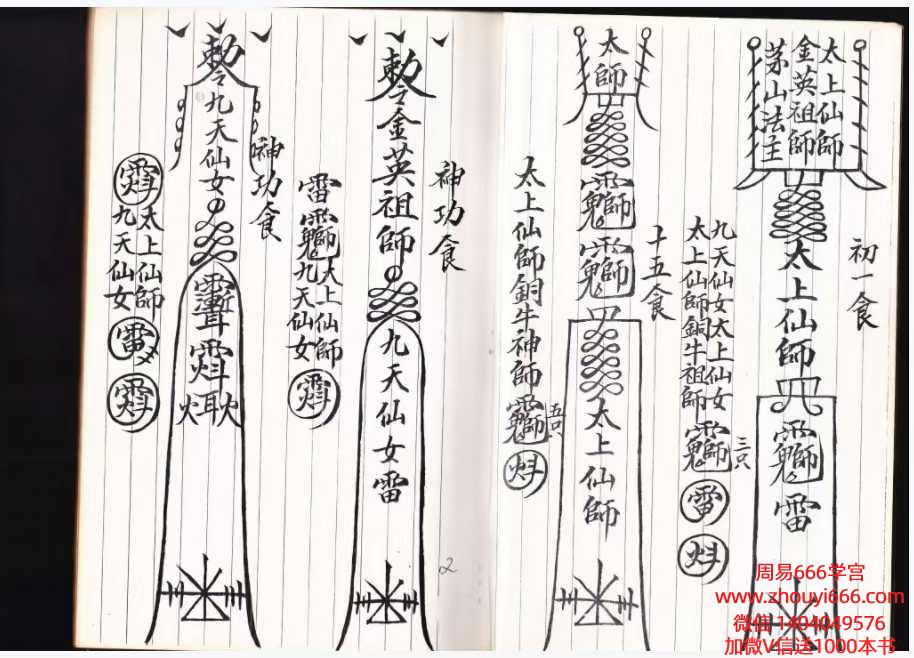 太上仙師
金英祖師
茅山法主
太上仙師
雷
初一食
九天仙女太上仙女
太上仙師銅牛祖師
三只
雷
太師
太上仙師
十五食
太上仙師銅牛神師
五只
勅令金英祖師
九天仙女雷
神功食
雷
太上仙師
九天仙女
勅令九天仙女
神功食
太上仙師
九天仙女
雷
2
周易666学宫
www.zhouyi666.com
微信 1404049576
加微V信送1000本书